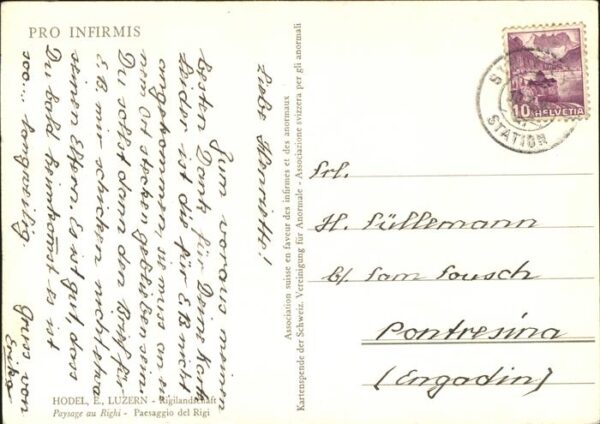 PRO INFIRMIS
Liebe Henriette!
Zum voraus meinen
besten Dank für Deine Karte
Leider ist die für E.B. nicht
angekommen, sie muss an ei-
nem Ort stecken geblieben sein
Du sollst dann den Brief für
E.B. mir schicken nicht etwa
seinen Eltern. Es ist gut, dass
Du bald heimkommst es ist
soo... langweilig
Gruss von
Erika
HODEL, E., LUZERN - Rigilandschaft
Paysage au Righi - Paesaggio del Rigi
Association suisse en faveur des infirmes et des anormaux
Kartenspende der Schweiz. Vereinigung für Anormale - Associazione svizzera per gli anormali
10 HELVETIA
STATION
Frl.
H. Süllemann
b/ Sam
Pontresina
(Engadin)